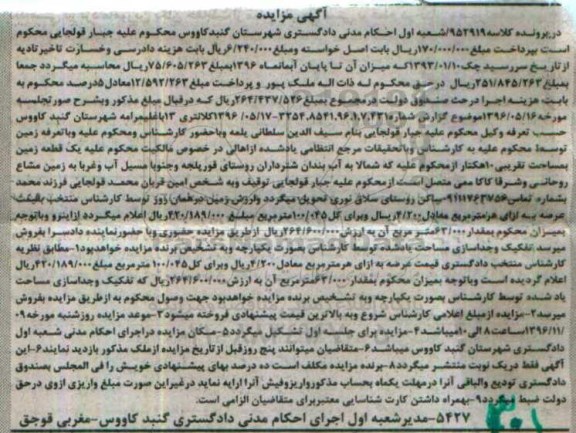 آگهی مزایده
درپرونده کلاسه۹۵۲۹۱۹/شعبه اول احکام مدنی دادگستری شهرستان گنبدکاووس محکوم علیه جبار قولجایی محکوم
است بپرداخت مبلغ۱۷۰/۰۰۰/۰۰۰ریال بابت اصل خواسته ومبلغ۶/۲۴۰/۰۰۰ریال بابت هزینه دادرسی وخسارت تاخیرتادیه
ازتاریخ سررسید چک۱۳۹۳/۰۱/۱۰که میزان آن تا پایان آبانماه ۱۳۹۶بمبلغ۷۵/۶۰۵/۲۶۳ریال محاسبه میگردد جمعا
بمبلغ۲۵۱/۸۴۵/۲۶۳ریال درحق محکوم له ذات اله ملک پور و پرداخت مبلغ۱۲/۵۹۲/۲۶۳معادل۵درصد محکوم به
بابت هزینه اجرا درحق صندوق دولت درمجموع بمبلغ۲۶۴/۴۳۷/۵۲۶ریال که درقبال مبلغ مذکور وبشرح صورتجلسه
مورخه۱۳۹۶/۰۵/۱۶موضوع گزارش شماره ۱۳۹۶/۰۵/۱۷کلانتری ۱۳باقلمرامه شهرستان گنبد کاووس
حسب تعرفه وکیل محکوم علیه جبار قولجایی بنام سیف الدین سلطانی یلمه وباحضور کارشناس ومحکوم علیه وباتعرفه زمین
توسط محکوم علیه به کارشناس وباتحقیقات مرجع انتظامی یادشده ازاهالی در خصوص مالکیت محکوم علیه یک قطعه زمین
بمساحت تقریبی۱۰هکتار ازمحکوم علیه که شمالا به آب بندان شترداران روستای قورپلجه وجنوبا مسیل آب وغربا به زمین مشاع
روحانی وشرقا کاکا ممی متصل است ازمحکوم علیه جبار قولجایی توقیف وبه شخص امین قربان محمد قولجایی فرزند محمد
بشماره تماس۰۹۱۱۱۷۶۳۷۵۶ساکن روستای سلاق نوری تحویل میگردد وارزش زمین درهمان روز توسط کارشناس منتخب بقیمت
عرصه به ازای هرمترمربع معادل۴/۲۰۰ریال وبرای کل۱۰۰/۰۴۵مترمربع مبلغ ۴۲۰/۱۸۹/۰۰۰ریال اعلام میگردد ازاینرو وباتوجه
بمیزان محکوم بمقدار۶۳/۰۰۰متر مربع آن به ارزش۲۶۴/۶۰۰/۰۰۰ریال ازطریق مزایده حضوری وبا حضورنماینده دادسرا بفروش
میرسد تفکیک وجداسازی مساحت یادشده توسط کارشناس بصورت یکپارچه وبه تشخیص برنده مزایده خواهدبود۱-مطابق نظریه
کارشناس منتخب دادگستری قیمت عرصه به ازای هرمترمربع معادل۴/۲۰۰ریال وبرای کل۱۰۰/۰۴۵ مترمربع مبلغ۴۲۰/۱۸۹/۰۰۰ریال
اعلام گردیده است وباتوجه بمیزان محکوم بمقدار ۶۳/۰۰۰مترمربع آن به ارزش۲۶۴/۶۰۰/۰۰۰ریال که تفکیک وجداسازی مساحت
یاد شده توسط کارشناس بصورت یکپارچه وبه تشخیص برنده مزایده خواهدبود جهت وصول محکوم به ازطریق مزایده بفروش
میرسد۲-مزایده ازمبلغ اعلامی کارشناس شروع وبه بالاترین قیمت پیشنهادی فروخته میشود۳-موعد مزایده روزشنبه مورخه۰۹
/۱۳۹۶/۱۱ساعت۸الی۱۰میباشد۴-مزایده برای جلسه اول تشکیل میگردد۵-مکان مزایده دراجرای احکام مدنی شعبه اول
دادگستری شهرستان گنبد کاووس میباشد۶-متقاضیان میتوانند پنج روزقبل ازتاریخ مزایده ازملک مذکور بازدید نمایند۶-این
آگهی فقط دریک نوبت منتشر میگردد۸-برنده مزایده مکلف است ده درصد بهای پیشنهادی خویش را فی المجلس بصندوق
دادگستری تودیع والباقی آنرا درمهلت یکماه بحساب مذکورواریزوفیش آنرا ارایه نماید درغیراین صورت مبلغ واریزی ازوی درحق
دولت ضبط میگردد۹-بهمراه داشتن کارت شناسایی معتبربرای متقاضیان الزامی است.
۵۴۲۷-مدیرشعبه اول اجرای احکام مدنی دادگستری گنبد کاووس-مغربی قوجق